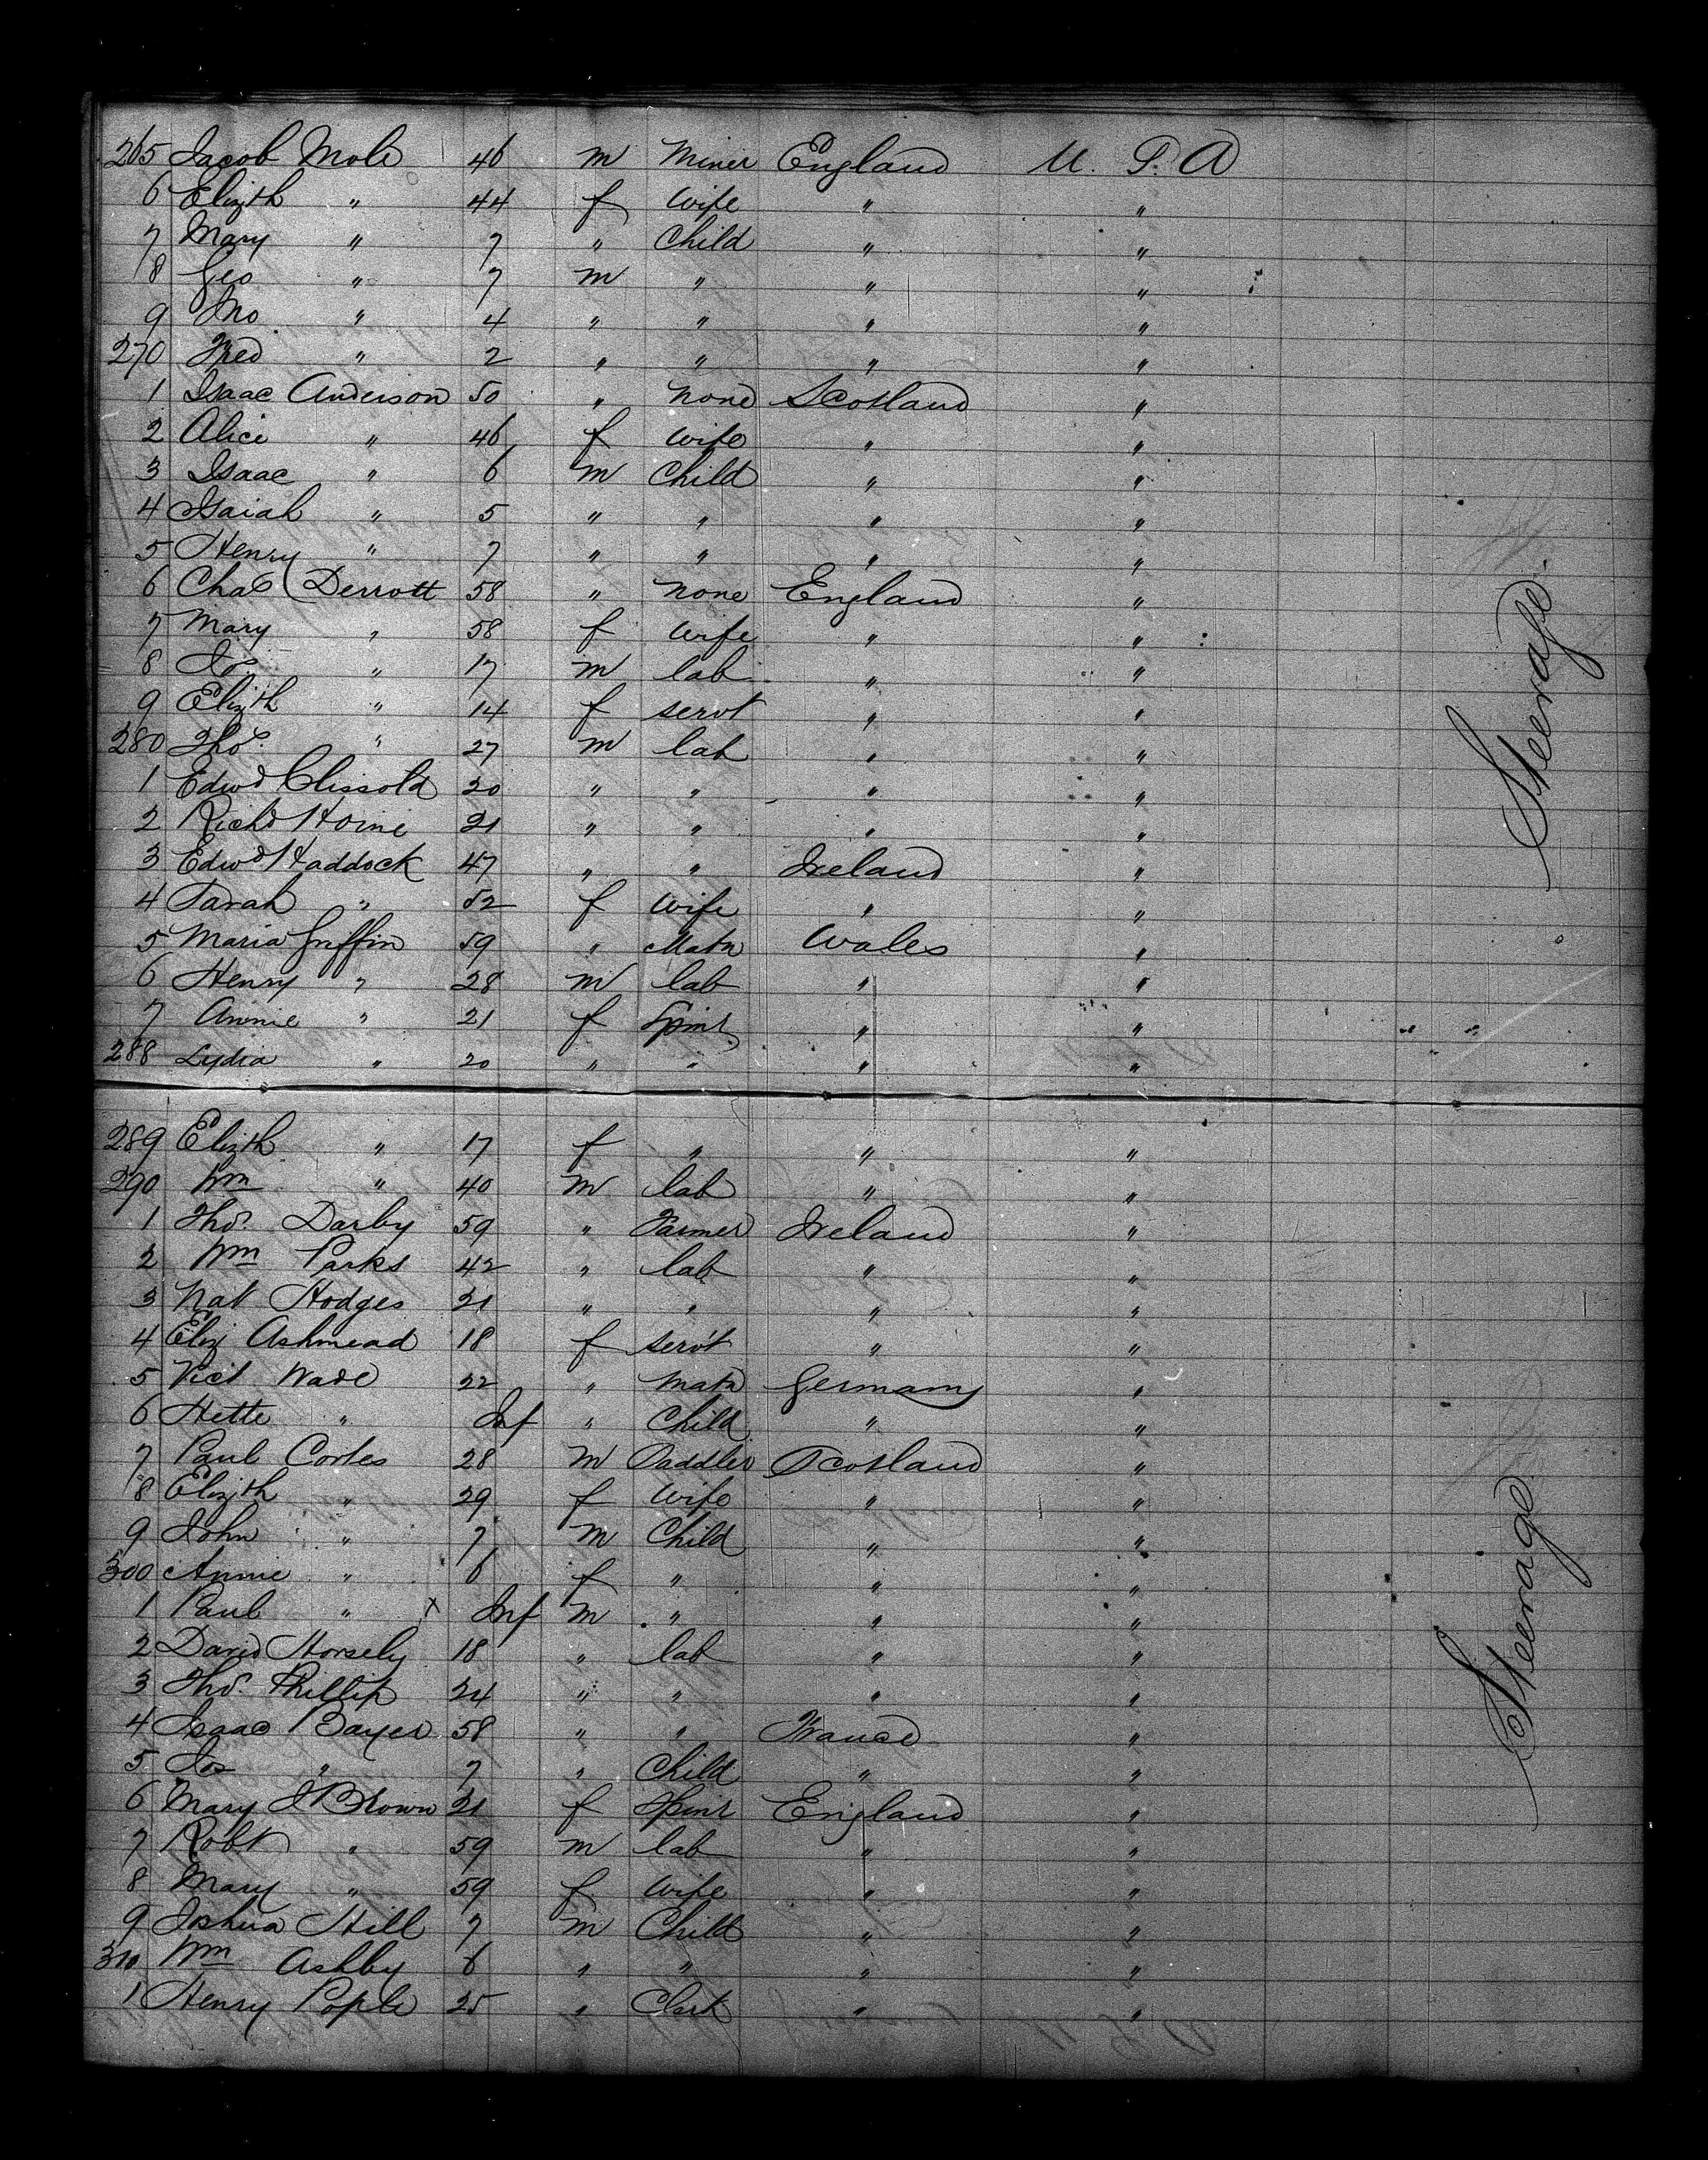 265 Jacob Mole 46 m Miner England U. S. A
6 Elizth " 44 f Wife " "
7 Mary " 7 " Child " "
8 Geo " 7 m " " "
9 Jno " 4 " " " "
270 Fred " 2 " " " "
1 Isaac Anderson 50 " None Scotland "
2 Alice " 46 f Wife " "
3 Isaac " 6 m Child " "
4 Isaiah " 5 " " " "
5 Henry " 7 " " " "
6 Chas Derrott 58 " None England "
7 Mary " 58 f Wife " "
8 Jos " 17 m lab " "
9 Elizth " 14 f servt " "
280 Thos " 27 m lab " "
1 Edwd Clissold 20 " " " "
2 Richd Horne 21 " " " "
3 Edwd Haddock 47 " " Ireland "
4 Sarah " 52 f Wife " "
5 Maria Griffin 59 " Matn Wales "
6 Henry " 28 m lab " "
7 Annie " 21 f Spins " "
288 Lydia " 20 " " " "
289 Elizth " 17 f " " "
290 Wm " 40 m lab " "
1 Thos. Darby 59 " Farmer Ireland "
2 Wm Parks 42 " lab " "
3 Nat Hodges 21 " " " "
4 Eliz Ashmead 18 f servt " "
5 Vict Wade 22 " Matn Germany "
6 Hette " Inf " Child " "
7 Paul Cortes 28 m Saddler Scotland "
8 Elizth " 29 f Wife " "
9 John " 7 m Child " "
300 Annie " 6 f " " "
1 Paul " x Inf m " " "
2 David Horsely 18 " lab " "
3 Thos. Phillip 24 " " " "
4 Isaac Bayer 58 " " France "
5 Jos " 7 " Child " "
6 Mary J Brown 21 f Spins England "
7 Robt " 59 m lab " "
8 Mary " 59 f Wife " "
9 Joshua Hill 7 m Child " "
310 Wm Ashby 6 " " " "
1 Henry Pople 25 " Clerk " "
Steerage
Steerage